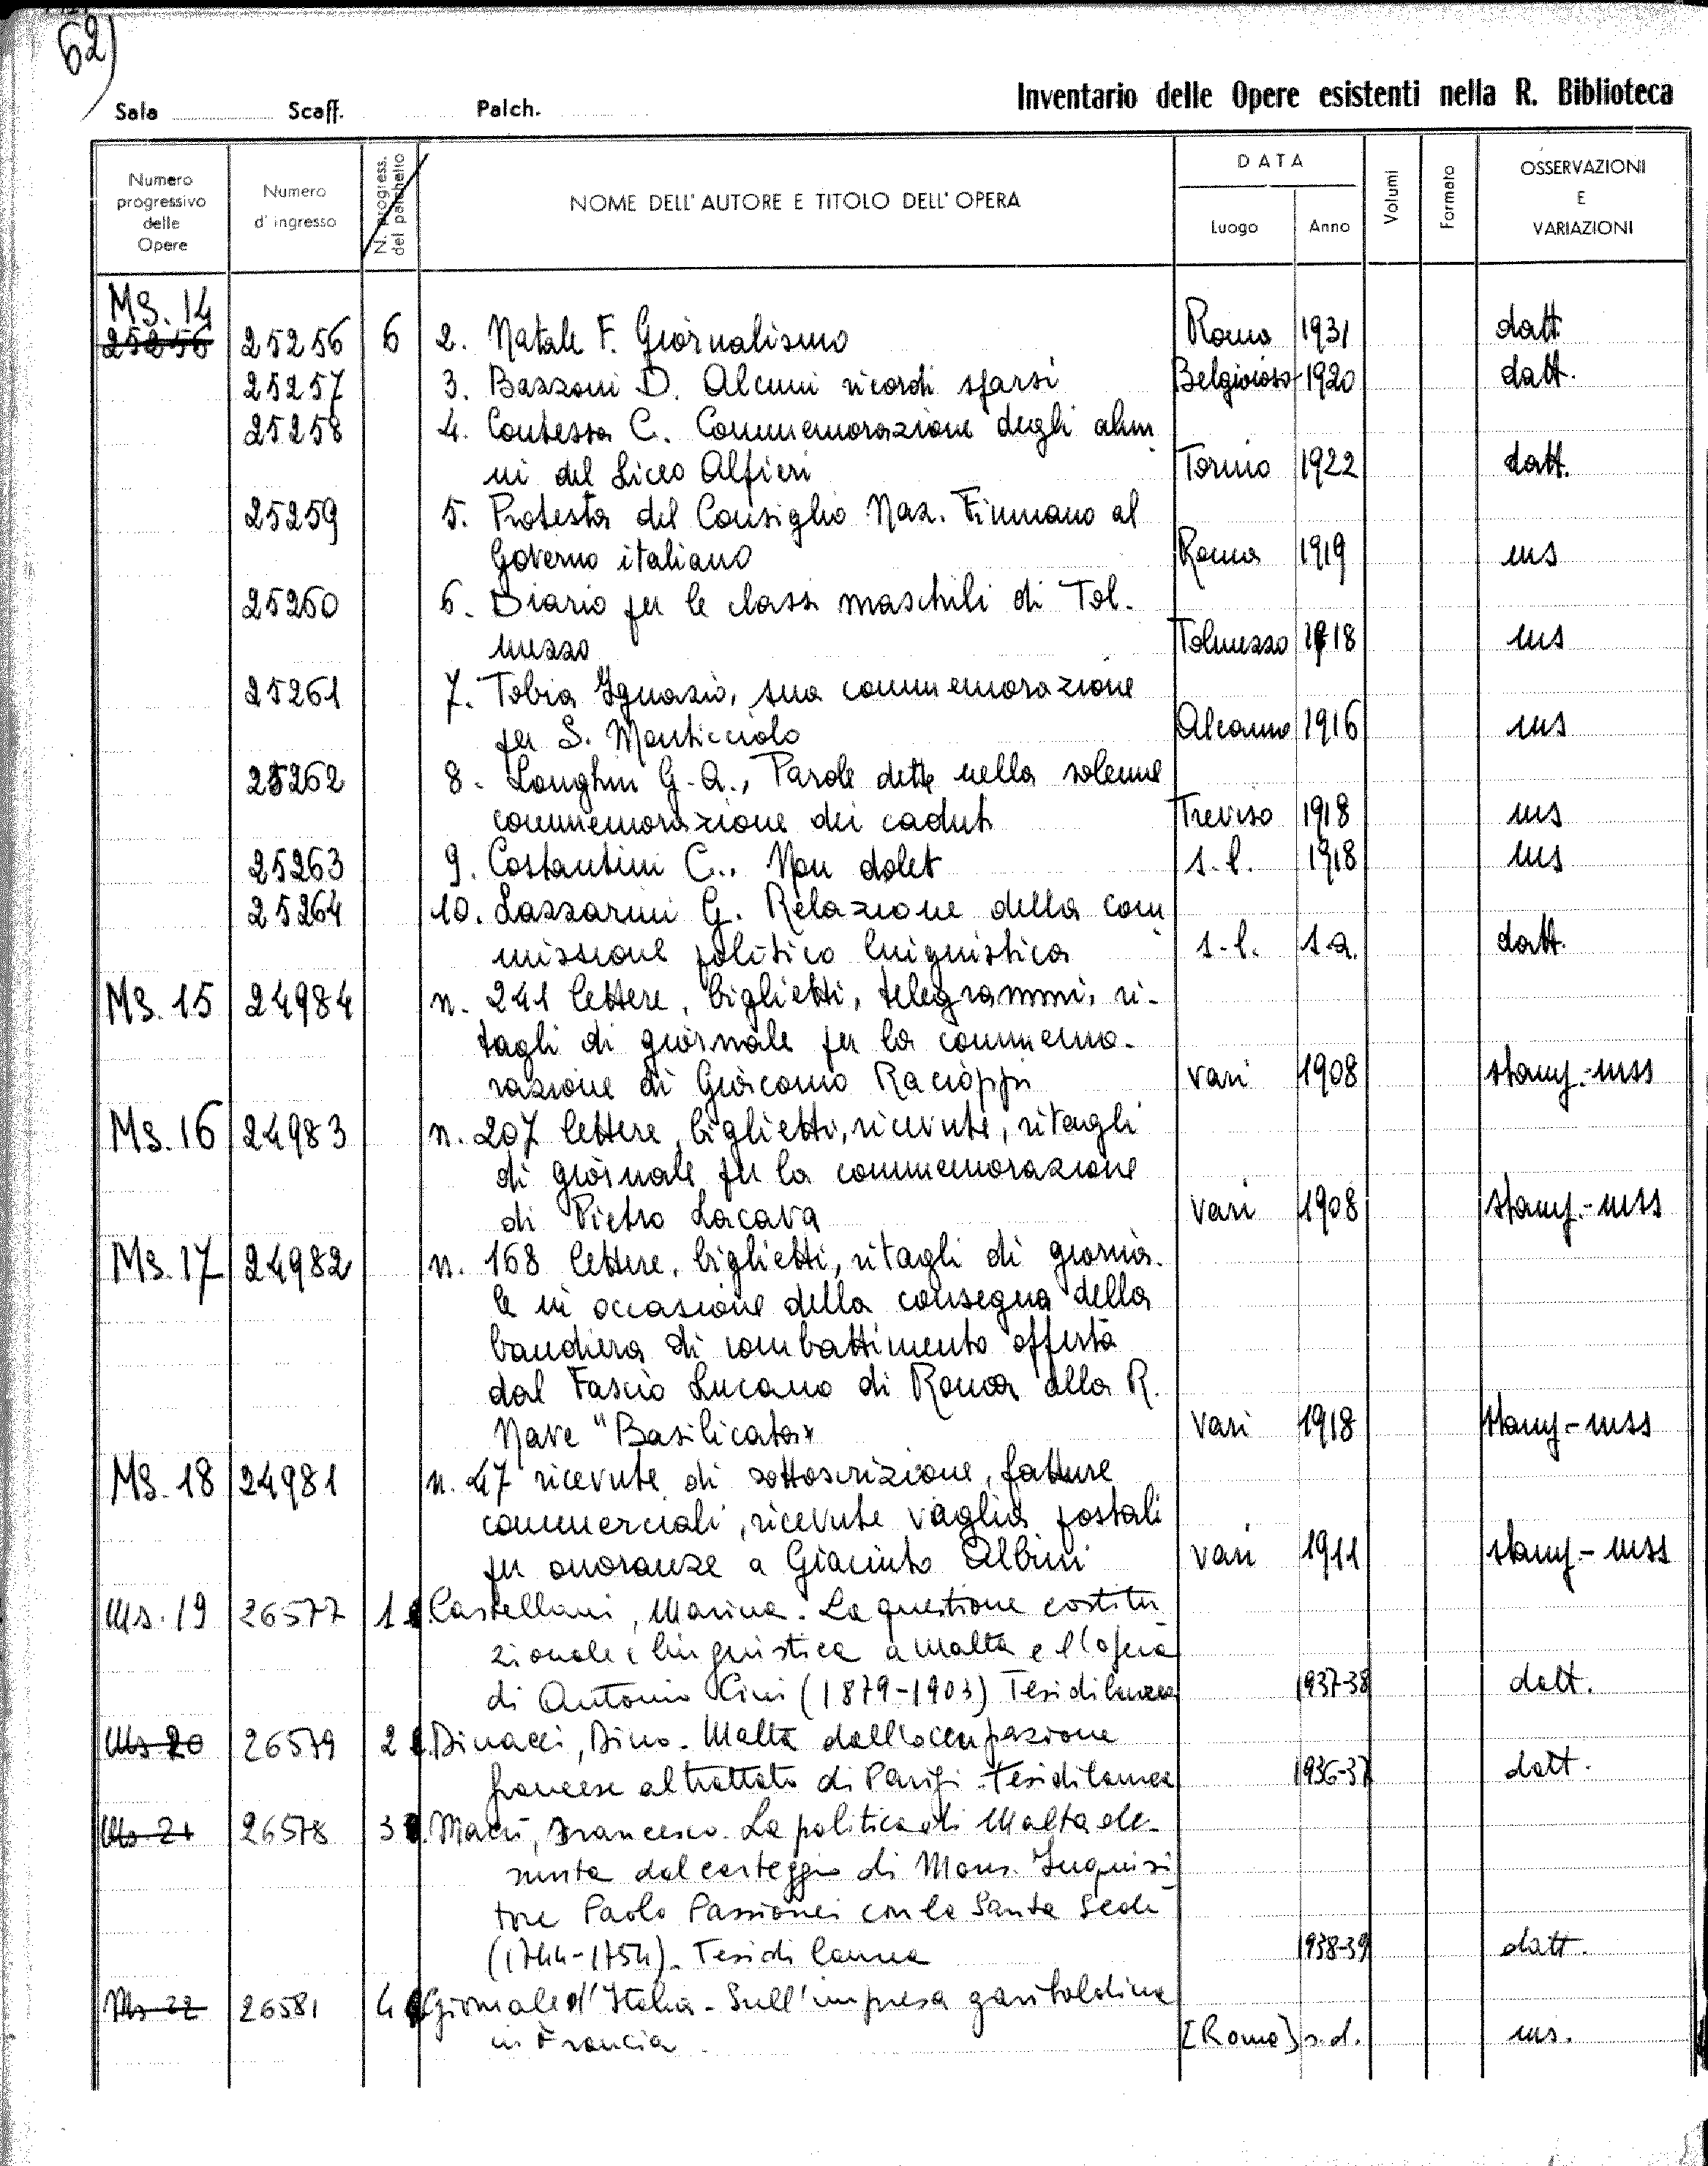 62)
Sala Scaff. Palch. Inventario delle Opere esistenti nella R. Biblioteca
Numero progressivo delle Opere
Numero d'ingresso
N. progress. del palchetto
NOME DELL'AUTORE E TITOLO DELL'OPERA
DATA
Luogo Anno
Volumi
Formato
OSSERVAZIONI E VARIAZIONI
MS. 14
25256 25256 6 2. Natale F. Giornalismo Roma 1931 datt
25257 3. Bazzoni D. Alcuni ricordi sparsi Belgioioso 1920 datt.
25258 4. Contessa C. Commemorazione degli alun
ni del Liceo Alfieri Torino 1922 datt.
25259 5. Protesta del Consiglio Naz. Fiumano al
Governo italiano Roma 1919 ms
25260 6. Diario per le classi maschili di Tol-
mezzo Tolmezzo 1918 ms
25261 7. Tobia Ignazio, sua commemorazione
per S. Monticciolo Alcamo 1916 ms
25262 8. Longhin G.A., Parole dette nella solenne
commemorazione dei caduti Treviso 1918 ms
25263 9. Costantini C., Non dolet s.l. 1918 ms
25264 10. Lazzarini G. Relazione della com
missione politico linguistica s.l. s.a. datt.
MS. 15 24984 n. 241 lettere, biglietti, telegrammi, ri-
tagli di giornale per la commemo-
razione di Giacomo Racioppi vari 1908 stamp.-mss
MS. 16 24983 n. 207 lettere, biglietti, ricevute, ritagli
di giornale per la commemorazione
di Pietro Lacava vari 1908 stamp.-mss
MS. 17 24982 n. 168 lettere, biglietti, ritagli di giorna-
le in occasione della consegna della
bandiera di combattimento offerta
dal Fascio Lucano di Roma alla R.
Nave "Basilicata" vari 1918 stamp-mss
MS. 18 24981 n. 47 ricevute di sottoscrizione, fatture
commerciali, ricevute vaglia postali
per onoranze a Giacinto Albini vari 1911 stamp-mss
Ms. 19 26577 1 Castellani, Marina. La questione costitu
zionale e linguistica a Malta e l'opera
di Antonio Cini (1879-1903) Tesi di laurea 1937-38 datt.
Ms 20 26579 2 Binacci, Dino. Malta dall'occupazione
francese al trattato di Parigi. Tesi di laurea 1936-37 datt.
Ms 21 26578 3 Macrì, Francesco. La politica di Malta de-
sunta dal carteggio di Mons. Inquisi
tore Paolo Passionei con la Santa Sede
(1744-1754). Tesi di laurea 1938-39 datt.
Ms 22 26581 4 Giornale d'Italia - Sull'impresa garibaldina
in Francia [Roma] s.d. ms.